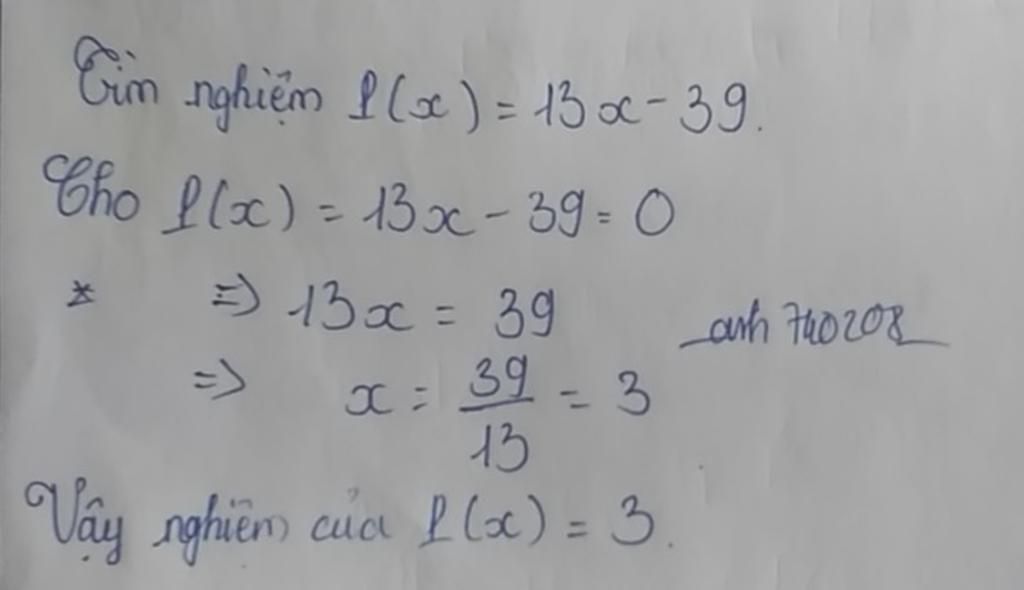 Tìm nghiệm P(x) = 13x - 39.
Cho P(x) = 13x - 39 = 0
* => 13x = 39
anh 740208
=> x = 39/13 = 3
Vậy nghiệm của P(x) = 3.